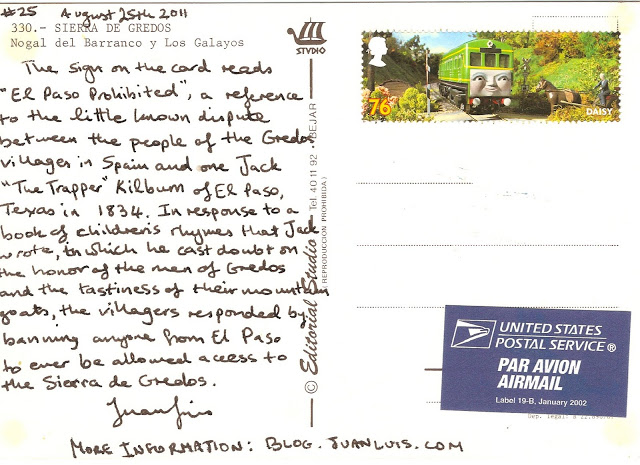 #25 August 25th 2011
330.- SIERRA DE GREDOS
Nogal del Barranco y Los Galayos
STVDIO
The sign on the card reads
"El Paso Prohibited", a reference
to the little known dispute
between the people of the Gredos
villages in Spain and one Jack
"The Trapper" Kilburn of El Paso,
Texas in 1834. In response to a
book of children's rhymes that Jack
wrote, in which he cast doubt on
the honor of the men of Gredos
and the tastiness of their mountain
goats, the villagers responded by
banning anyone from El Paso
to ever be allowed access to
the Sierra de Gredos.
MORE INFORMATION: BLOG.JUANLUIS.COM
© Editorial Studio - Tel. 40 11 92 - BEJAR
REPRODUCCION PROHIBIDA)
76
DAISY
UNITED STATES
POSTAL SERVICE®
PAR AVION
AIRMAIL
Label 19-B, January 2002